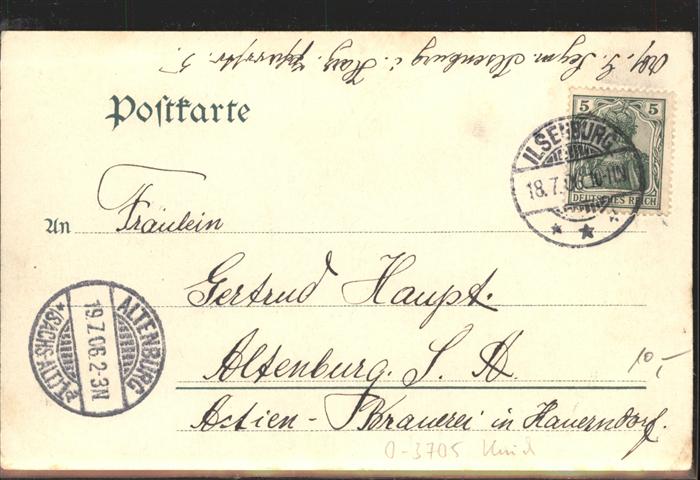 Abs. G. Seym. Ilsenburg i. Harz.
Postkarte
5 5
DEUTSCHES REICH
ILSENBURG
18.7.06. 10-11V
An Fräulein
Gertrud Haupt.
Altenburg. S. A.
Actien-Brauerei in Kauerndorf.
ALTENBURG
19.7.06.2-3N
*(SACHS-ALT)
10,-
0-3705